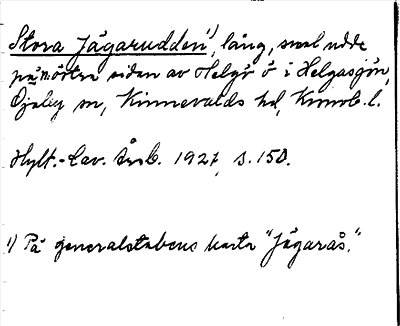 Stora Jägarudden¹⁾, lång, smal udde
på n. östra sidan av Helgö ö i Helgasjön,
Öjaby sn, Kinnevalds hd, Kronob. l.
Hylt.-Cav. Årsb. 1927, s. 150.
¹⁾ På generalstabens karta "Jägarås."